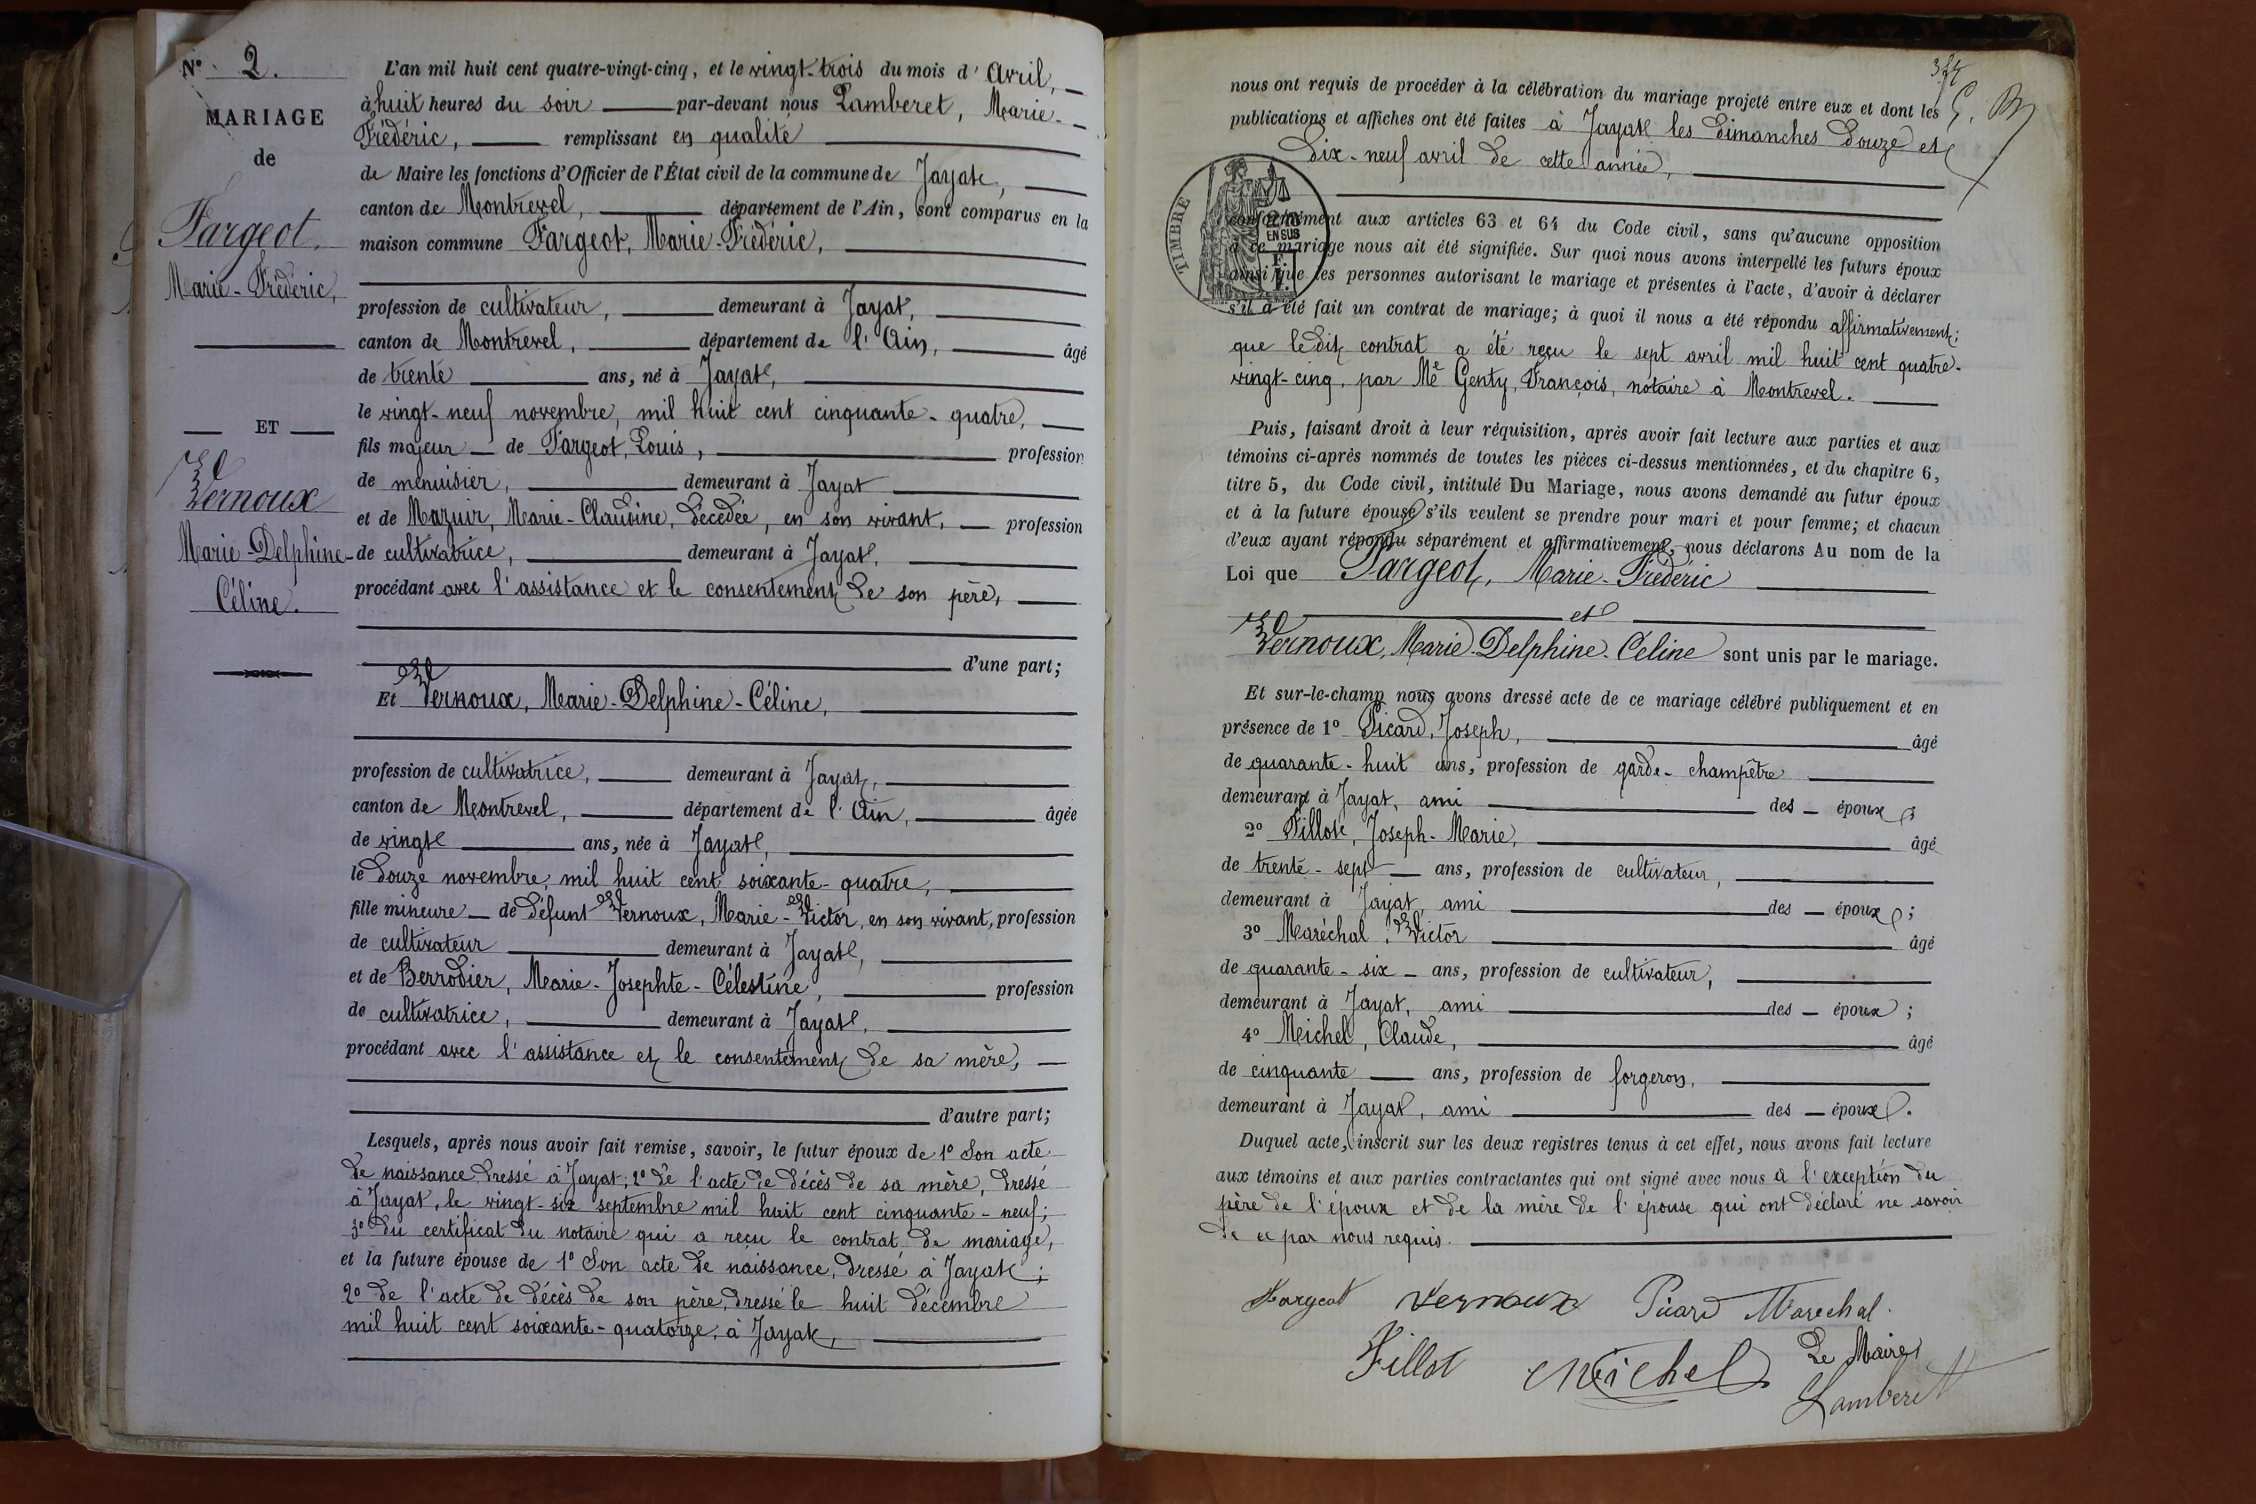 N° 2.
MARIAGE
de
Fargeot,
Marie-Frédéric,
ET
Vernoux
Marie-Delphine-
Céline.
L'an mil huit cent quatre-vingt-cinq, et le vingt-trois du mois d'Avril,
à huit heures du soir par-devant nous Lamberet, Marie-
Frédéric, remplissant en qualité
de Maire les fonctions d'Officier de l'État civil de la commune de Jayat,
canton de Montrevel, département de l'Ain, sont comparus en la
maison commune Fargeot, Marie-Frédéric,
profession de cultivateur, demeurant à Jayat,
canton de Montrevel, département de l'Ain, âgé
de trente ans, né à Jayat,
le vingt-neuf novembre, mil huit cent cinquante-quatre,
fils majeur de Fargeot, Louis, profession
de menuisier, demeurant à Jayat
et de Mazuir, Marie-Claudine, décédée, en son vivant, profession
de cultivatrice, demeurant à Jayat,
procédant avec l'assistance et le consentement de son père,
d'une part;
Et Vernoux, Marie-Delphine-Céline,
profession de cultivatrice, demeurant à Jayat,
canton de Montrevel, département de l'Ain, âgée
de vingt ans, née à Jayat,
le douze novembre, mil huit cent soixante-quatre,
fille mineure de défunt Vernoux, Marie-Victor, en son vivant, profession
de cultivateur demeurant à Jayat,
et de Berrodier, Marie-Josephte-Célestine, profession
de cultivatrice, demeurant à Jayat,
procédant avec l'assistance et le consentement de sa mère,
d'autre part;
Lesquels, après nous avoir fait remise, savoir, le futur époux de 1° Son acte
de naissance dressé à Jayat; 2° de l'acte de décès de sa mère, dressé
à Jayat, le vingt-six septembre mil huit cent cinquante-neuf;
3° du certificat du notaire qui a reçu le contrat de mariage,
et la future épouse de 1° Son acte de naissance, dressé à Jayat;
2° de l'acte de décès de son père, dressé le huit décembre
mil huit cent soixante-quatorze, à Jayat,
nous ont requis de procéder à la célébration du mariage projeté entre eux et dont les
publications et affiches ont été faites à Jayat les dimanches douze et
dix-neuf avril de cette année,
TIMBRE
EN SUS
conformément aux articles 63 et 64 du Code civil, sans qu'aucune opposition
à ce mariage nous ait été signifiée. Sur quoi nous avons interpellé les futurs époux
ainsi que les personnes autorisant le mariage et présentes à l'acte, d'avoir à déclarer
s'il a été fait un contrat de mariage; à quoi il nous a été répondu affirmativement;
que ledit contrat a été reçu le sept avril mil huit cent quatre-
vingt-cinq, par Me Genty, François, notaire à Montrevel.
Puis, faisant droit à leur réquisition, après avoir fait lecture aux parties et aux
témoins ci-après nommés de toutes les pièces ci-dessus mentionnées, et du chapitre 6,
titre 5, du Code civil, intitulé Du Mariage, nous avons demandé au futur époux
et à la future épouse s'ils veulent se prendre pour mari et pour femme; et chacun
d'eux ayant répondu séparément et affirmativement, nous déclarons Au nom de la
Loi que Fargeot, Marie-Frédéric
et
Vernoux, Marie-Delphine-Céline sont unis par le mariage.
Et sur-le-champ nous avons dressé acte de ce mariage célébré publiquement et en
présence de 1° Picard, Joseph, âgé
de quarante-huit ans, profession de garde-champêtre
demeurant à Jayat, ami des époux;
2° Fillot, Joseph-Marie, âgé
de trente-sept ans, profession de cultivateur,
demeurant à Jayat, ami des époux;
3° Maréchal, Victor âgé
de quarante-six ans, profession de cultivateur,
demeurant à Jayat, ami des époux;
4° Michel, Claude, âgé
de cinquante ans, profession de forgeron,
demeurant à Jayat, ami des époux.
Duquel acte, inscrit sur les deux registres tenus à cet effet, nous avons fait lecture
aux témoins et aux parties contractantes qui ont signé avec nous à l'exception du
père de l'époux et de la mère de l'épouse qui ont déclaré ne savoir
de ce par nous requis.
Fargeot Vernoux Picard Marechal.
Fillot Michel Le Maire,
Lamberet